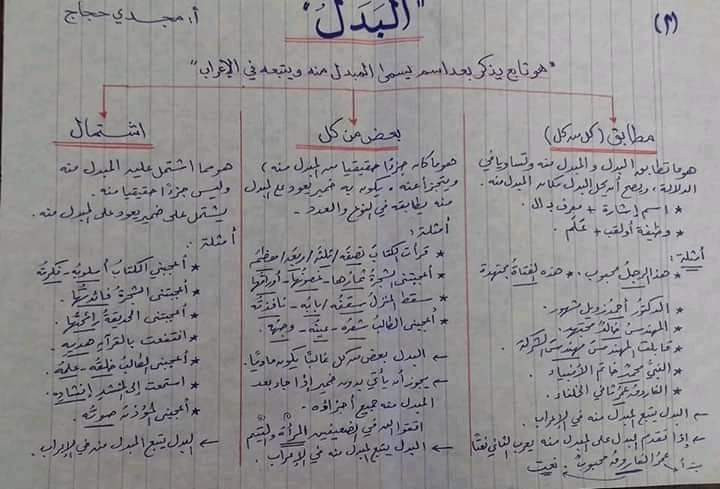 (٣)
"البَدَلُ"
أ. مجدي حجاج
"هو تابع يذكر بعد اسم يسمى المبدل منه ويتبعه في الإعراب"
مطابق (كل من كل)
هو ما تطابق البدل و المبدل منه وتساويا في
الدلالة، ويصح أن يحل البدل مكان المبدل منه.
* اسم إشارة + معرف بـ ال.
* وظيفة أو لقب + عَلَم.
أمثلة:
* هذا الرجلُ محبوب. * هذه الفتاةُ مجتهدة
* الدكتور أحمد زويل مشهور.
* المهندس خالدٌ مجتهد.
* قابلت المهندسَ مهندسَ الشركة.
* النبيُّ محمدٌ خاتم الأنبياء
* الفاروقُ عمرُ ثاني الخلفاء.
← البدل يتبع المبدل منه في الإعراب.
← إذا تقدم البدل على المبدل منه يعرب الثاني نعتًا
عمرُ الفاروقُ محبوبٌ. نعت
بعض من كل
هو ما كان جزءًا حقيقيا من المبدل منه،
ويتجزأ عنه، يكون به ضمير يعود على المبدل
منه يطابقه في النوع والعدد.
أمثلة:
* قرأت الكتابَ نصفَه / ثلثَه / ربعَه / معظمَه
* أعجبتني الشجرةُ ثمارُها - غصونُها - أوراقُها
* سقط المنزلُ سقفُه / بابُه - نافذتُه
* أعجبني الطالبُ شعرُه - عينُه - وجهُه.
← البدل بعض من كل غالبًا يكون ماديًا.
← يجوز أن يأتي بدون ضمير إذا جاء بعد
المبدل منه جميع أجزاؤه.
اتقوا الله في الضعيفين المرأةِ واليتيمِ
← البدل يتبع المبدل منه في الإعراب.
اشتمال
هو مما اشتمل عليه المبدل منه
وليس جزءًا حقيقيا منه.
يشتمل على ضمير يعود على المبدل منه.
أمثلة:
* أعجبني الكتابُ أسلوبُه - فكرتُه
* أعجبتني الشجرةُ فائدتُها.
* أعجبتني الحديقةُ رائحتُها.
* انتفعت بالقرآنِ هديِه.
* أعجبني الطالبُ خلقُه - علمُه.
* استمعت إلى المنشدِ إنشادِه.
* أعجبني المؤذنُ صوتُه.
← البدل يتبع المبدل منه في الإعراب.